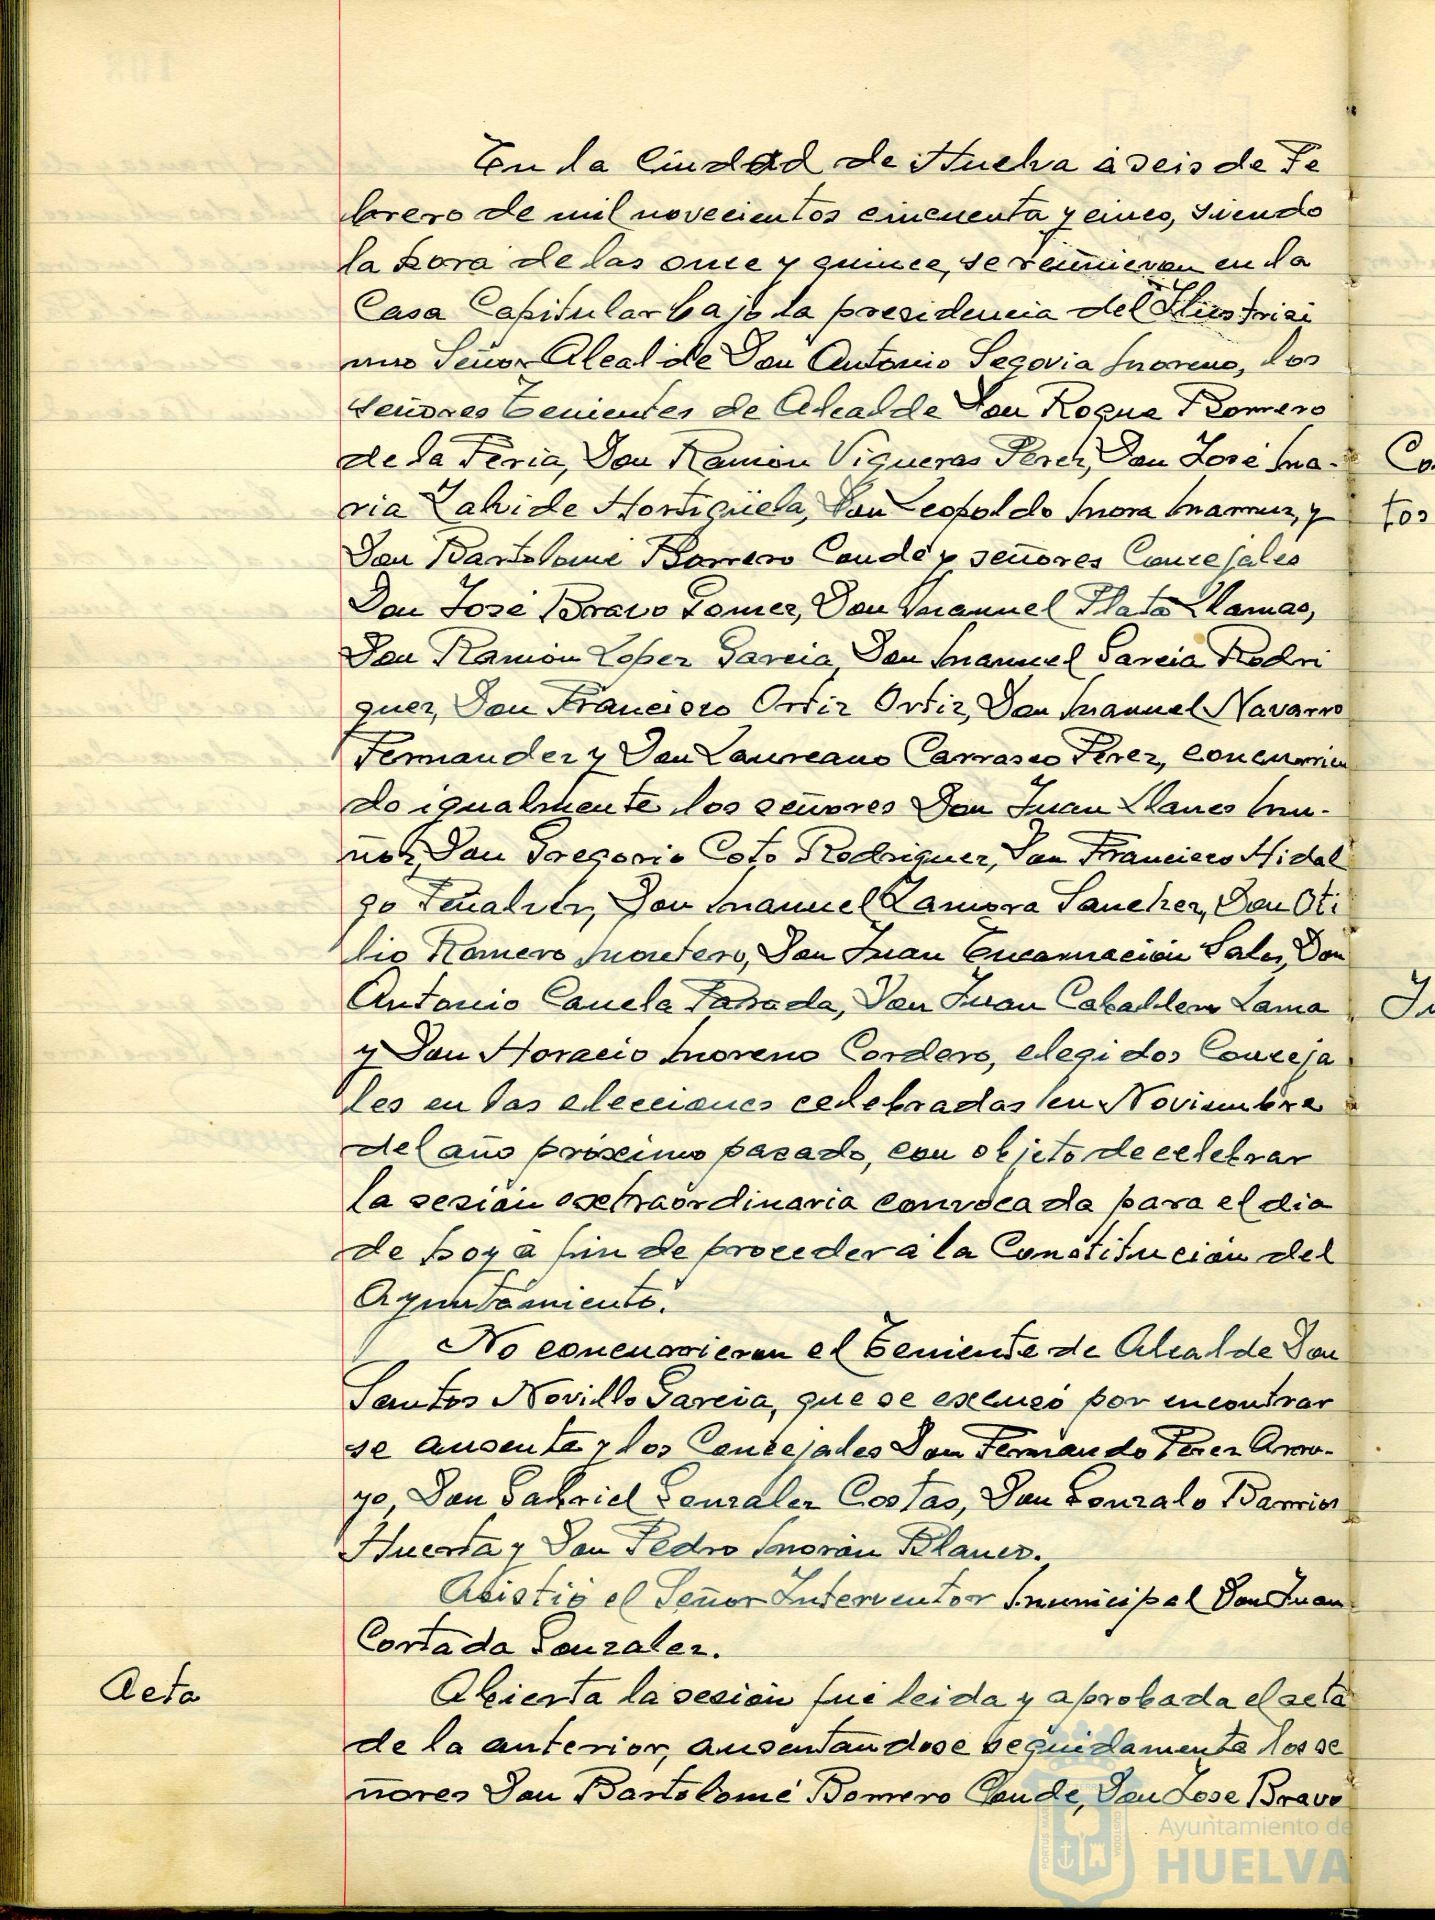 En la Ciudad de Huelva á seis de Fe
brero de mil novecientos cincuenta y cinco, siendo
la hora de las once y quince, se reunieron en la
Casa Capitular bajo la presidencia del Ilustrisi
mo Señor Alcalde Don Antonio Segovia Moreno, los
señores Tenientes de Alcalde Don Roque Romero
de la Feria, Don Ramón Vigueras Pérez, Don José Ma-
ria Zalvide Hortigüela, Don Leopoldo Mora Marruz, y
Don Bartolomé Borrero Conde y señores Concejales
Don José Bravo Gomez, Don Manuel Plata Llamas,
Don Ramón Lopez Garcia, Don Manuel Garcia Rodri
guez, Don Francisco Ortiz Ortiz, Don Manuel Navarro
Fernandez y Don Laureano Carrasco Pérez, concurrien
do igualmente los señores Don Juan Llanes Mu-
ñoz, Don Gregorio Coto Rodriguez, Don Francisco Hidal
go Peñalver, Don Manuel Zamora Sanchez, Don Oti
lio Romero Montero, Don Juan Encarnación Salas, Don
Antonio Canela Parada, Don Juan Caballero Lama
y Don Horacio Moreno Cordero, elegidos Conceja
les en las elecciones celebradas en Noviembre
del año próximo pasado, con objeto de celebrar
la sesión extraordinaria convocada para el dia
de hoy á fin de proceder á la Constitución del
Ayuntamiento.
No concurrieron el Teniente de Alcalde Don
Santos Novillo Garcia, que se excusó por encontrar
se ausente y los Concejales Don Fernando Pérez Arro-
yo, Don Gabriel Gonzalez Costas, Don Gonzalo Barrios
Huerta y Don Pedro Morón Blanco.
Asistió el Señor Interventor Municipal Don Juan
Cortada Gonzalez.
Acta
Abierta la sesión fué leida y aprobada el acta
de la anterior, ausentandose seguidamente los se
ñores Don Bartolomé Borrero Conde, Don Jose Bravo
Co
tos
Ayuntamiento de
HUELVA